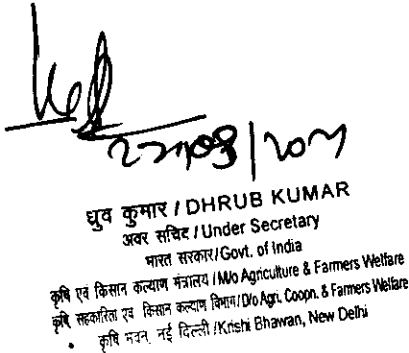 ध्रुव कुमार / DHRUB KUMAR
अवर सचिव / Under Secretary
भारत सरकार/Govt. of India
कृषि एवं किसान कल्याण मंत्रालय / M/o Agriculture & Farmers Welfare
कृषि सहकारिता एवं किसान कल्याण विभाग/ D/o Agri. Coopn. & Farmers Welfare
कृषि भवन, नई दिल्ली /Krishi Bhawan, New Delhi